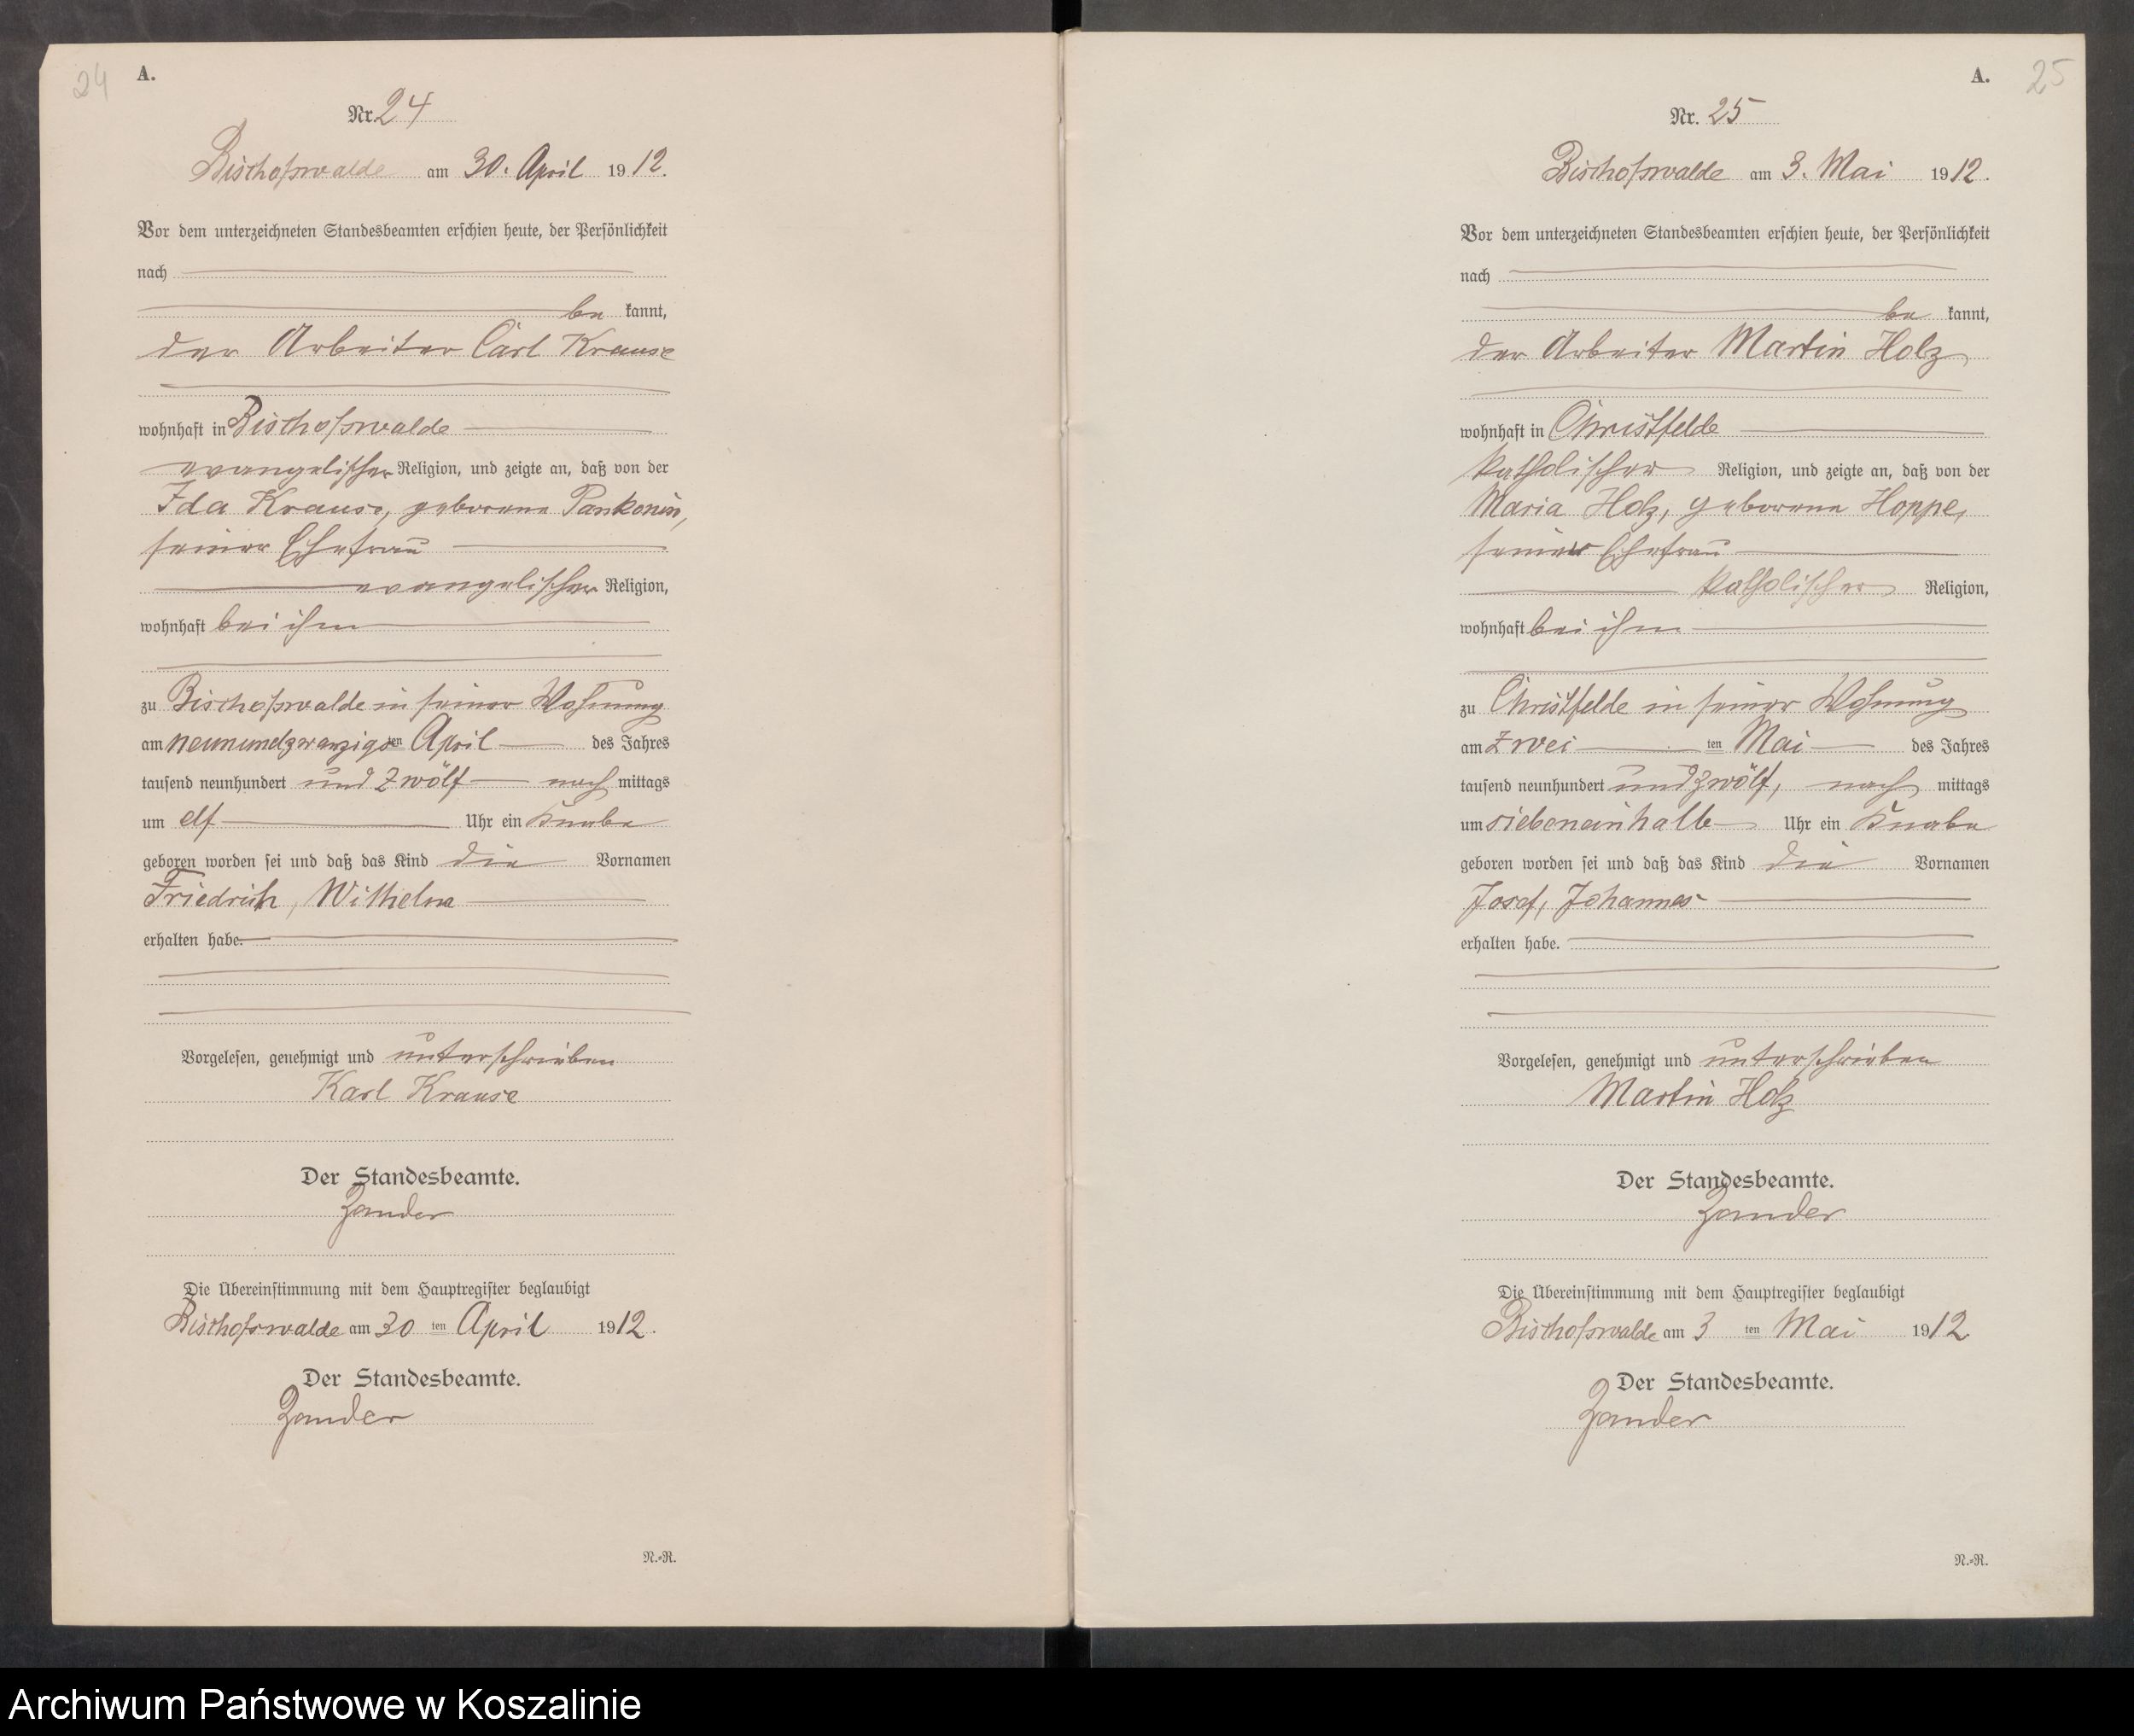 24
A.
Nr. 24
Bischofswalde am 30. April 1912.
Vor dem unterzeichneten Standesbeamten erschien heute, der Persönlichkeit
nach
be kannt,
der Arbeiter Carl Krause
wohnhaft in Bischofswalde
evangelischer Religion, und zeigte an, daß von der
Ida Krause, geborene Pankonin,
seiner Ehefrau
evangelischer Religion,
wohnhaft bei ihm
zu Bischofswalde in seiner Wohnung
am neunundzwanzigsten April des Jahres
tausend neunhundert und zwölf nach mittags
um elf Uhr ein Knabe
geboren worden sei und daß das Kind die Vornamen
Friedrich, Wilhelm
erhalten habe.
Vorgelesen, genehmigt und unterschrieben
Karl Krause
Der Standesbeamte.
Zander
Die Übereinstimmung mit dem Hauptregister beglaubigt
Bischofswalde am 30 ten April 1912.
Der Standesbeamte.
Zander
N.-R.
A.
25
Nr. 25
Bischofswalde am 3. Mai 1912.
Vor dem unterzeichneten Standesbeamten erschien heute, der Persönlichkeit
nach
be kannt,
der Arbeiter Martin Holz
wohnhaft in Christfelde
katholischer Religion, und zeigte an, daß von der
Maria Holz, geborene Hoppe,
seiner Ehefrau
katholischer Religion,
wohnhaft bei ihm
zu Christfelde in seiner Wohnung
am zwei ten Mai des Jahres
tausend neunhundert und zwölf, nach mittags
um siebeneinhalb Uhr ein Knabe
geboren worden sei und daß das Kind die Vornamen
Josef, Johannes
erhalten habe.
Vorgelesen, genehmigt und unterschrieben
Martin Holz
Der Standesbeamte.
Zander
Die Übereinstimmung mit dem Hauptregister beglaubigt
Bischofswalde am 3 ten Mai 1912
Der Standesbeamte.
Zander
N.-R.
Archiwum Państwowe w Koszalinie